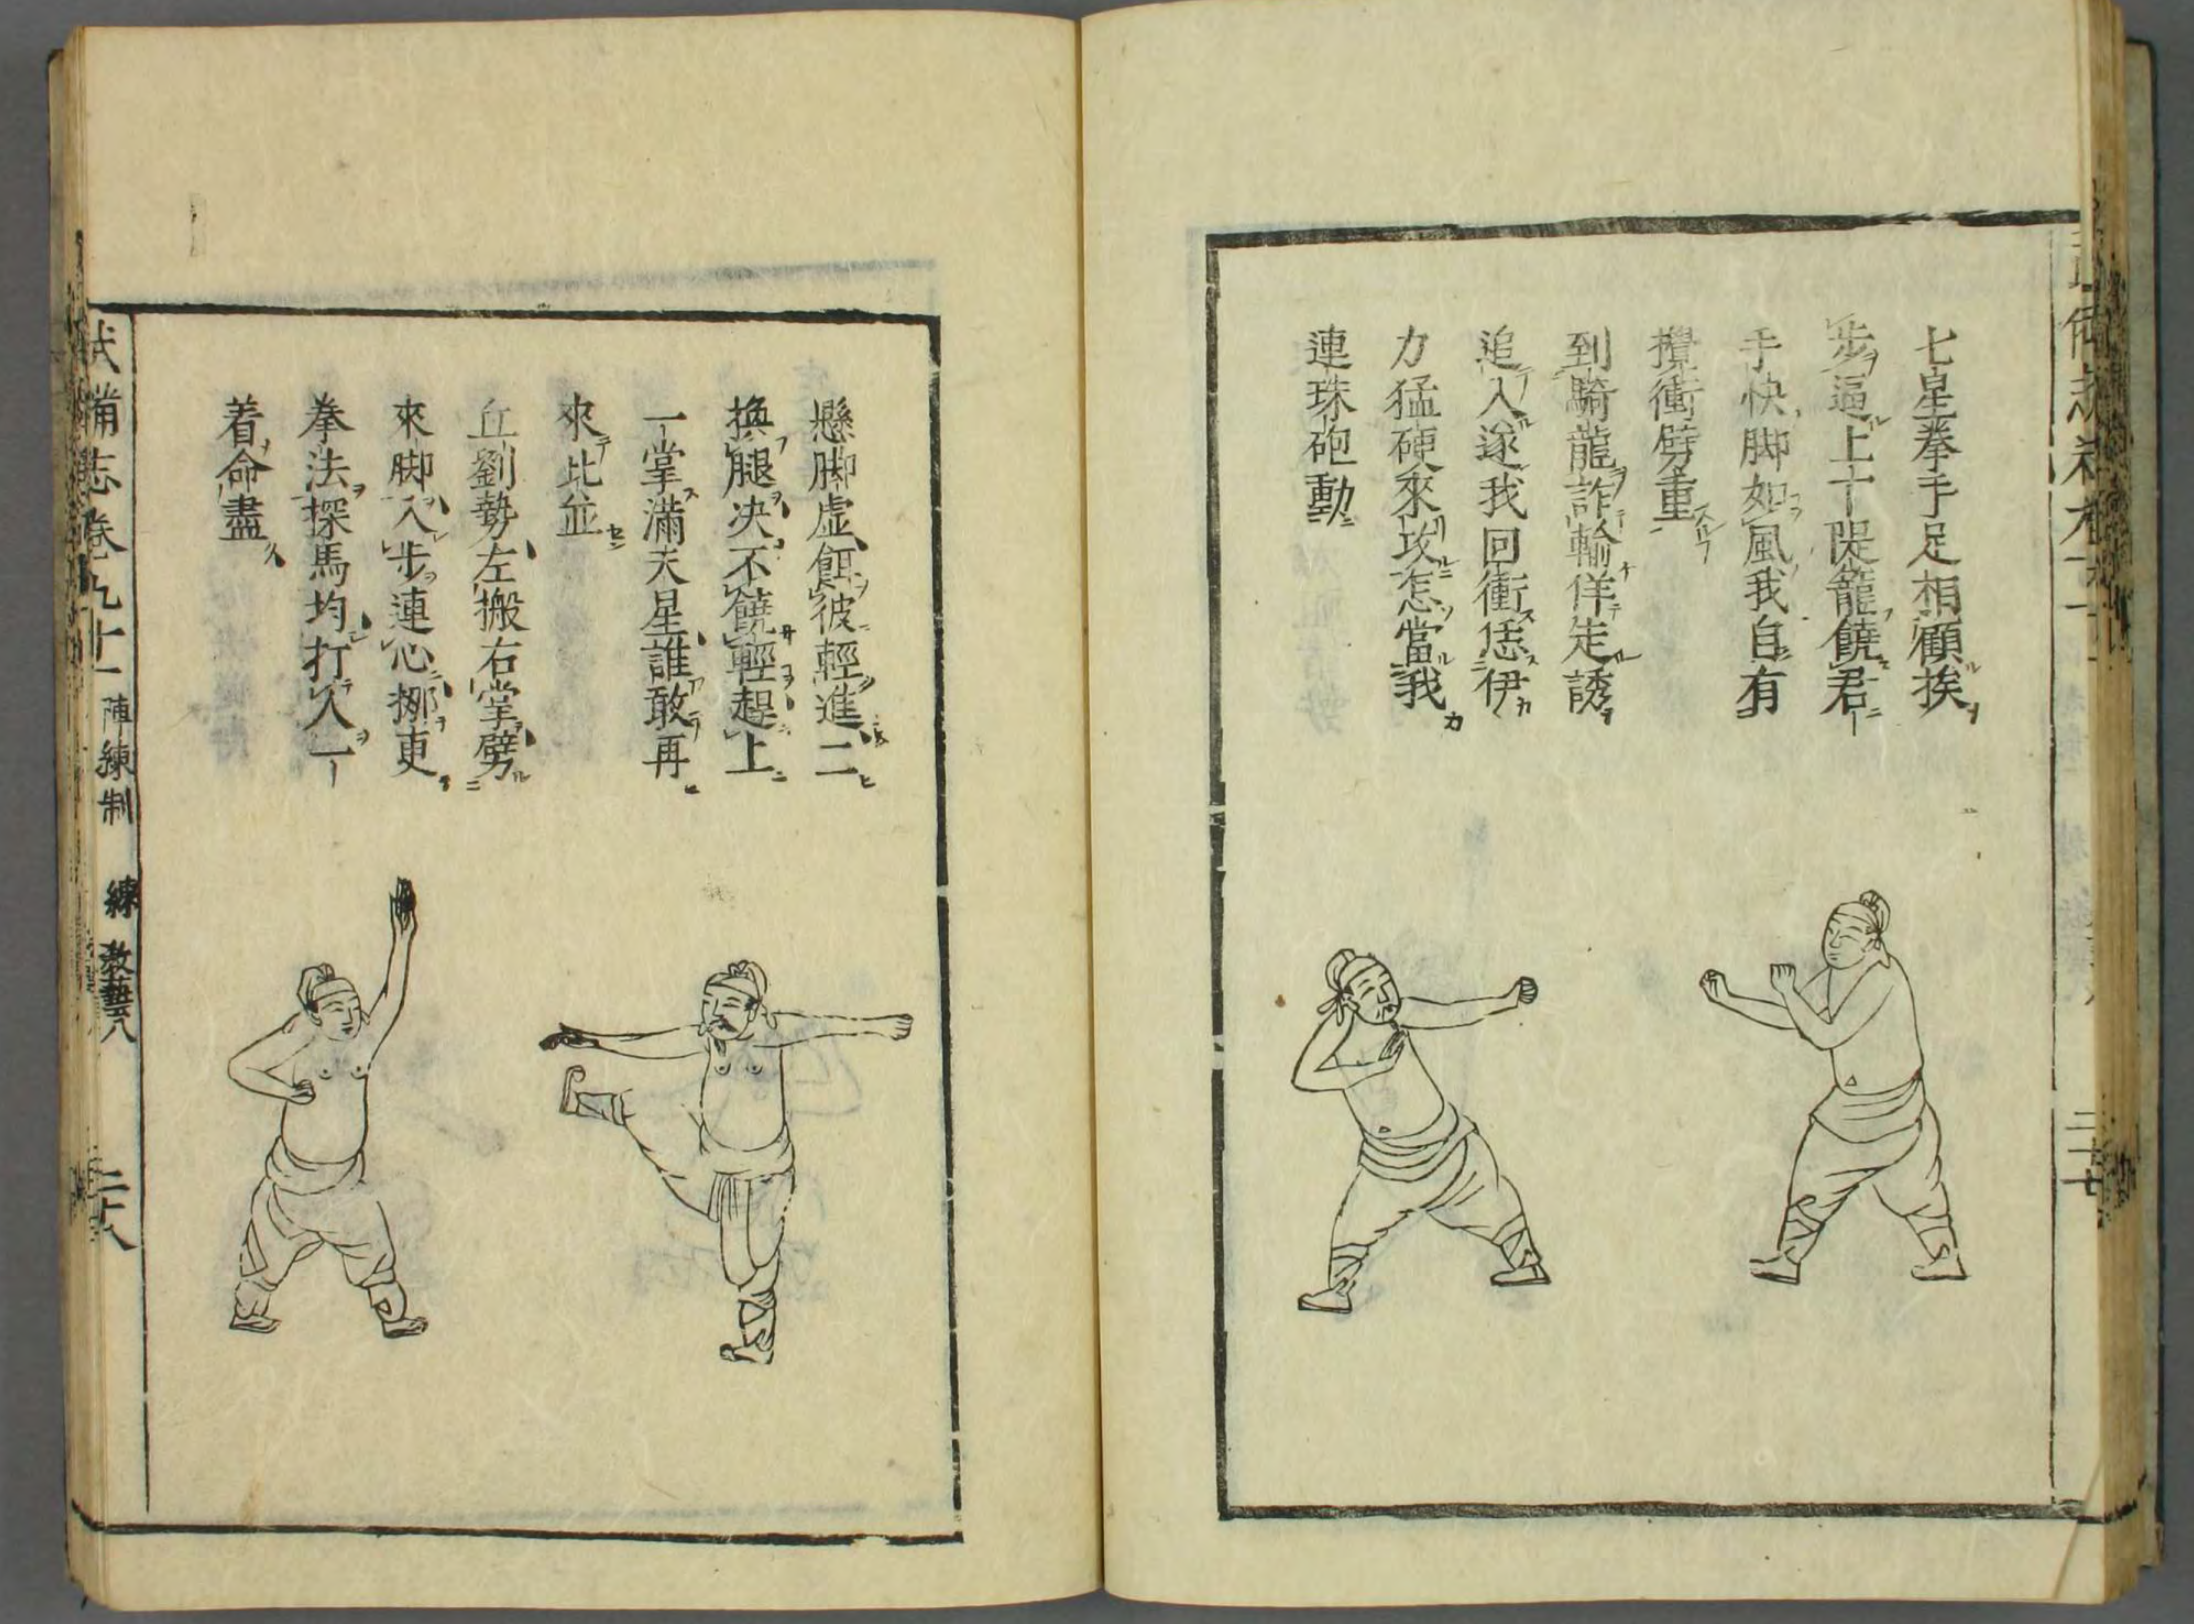 七星拳手足相顧挨
步逼上下隄籠饒君
手快脚如風我自有
攪衝劈重
到騎龍詐輸佯走誘
追入遂我回衝恁伊
力猛硬來攻怎當我
連珠砲動
懸脚虛餌彼輕進二
換腿决不饒輕趕上
一掌滿天星誰敢再
來比並
丘劉勢左搬右掌劈
來脚入步連心挪更
拳法探馬均打人一
着命盡
武備志卷九十一 陣練制 練 教藝八 二十八